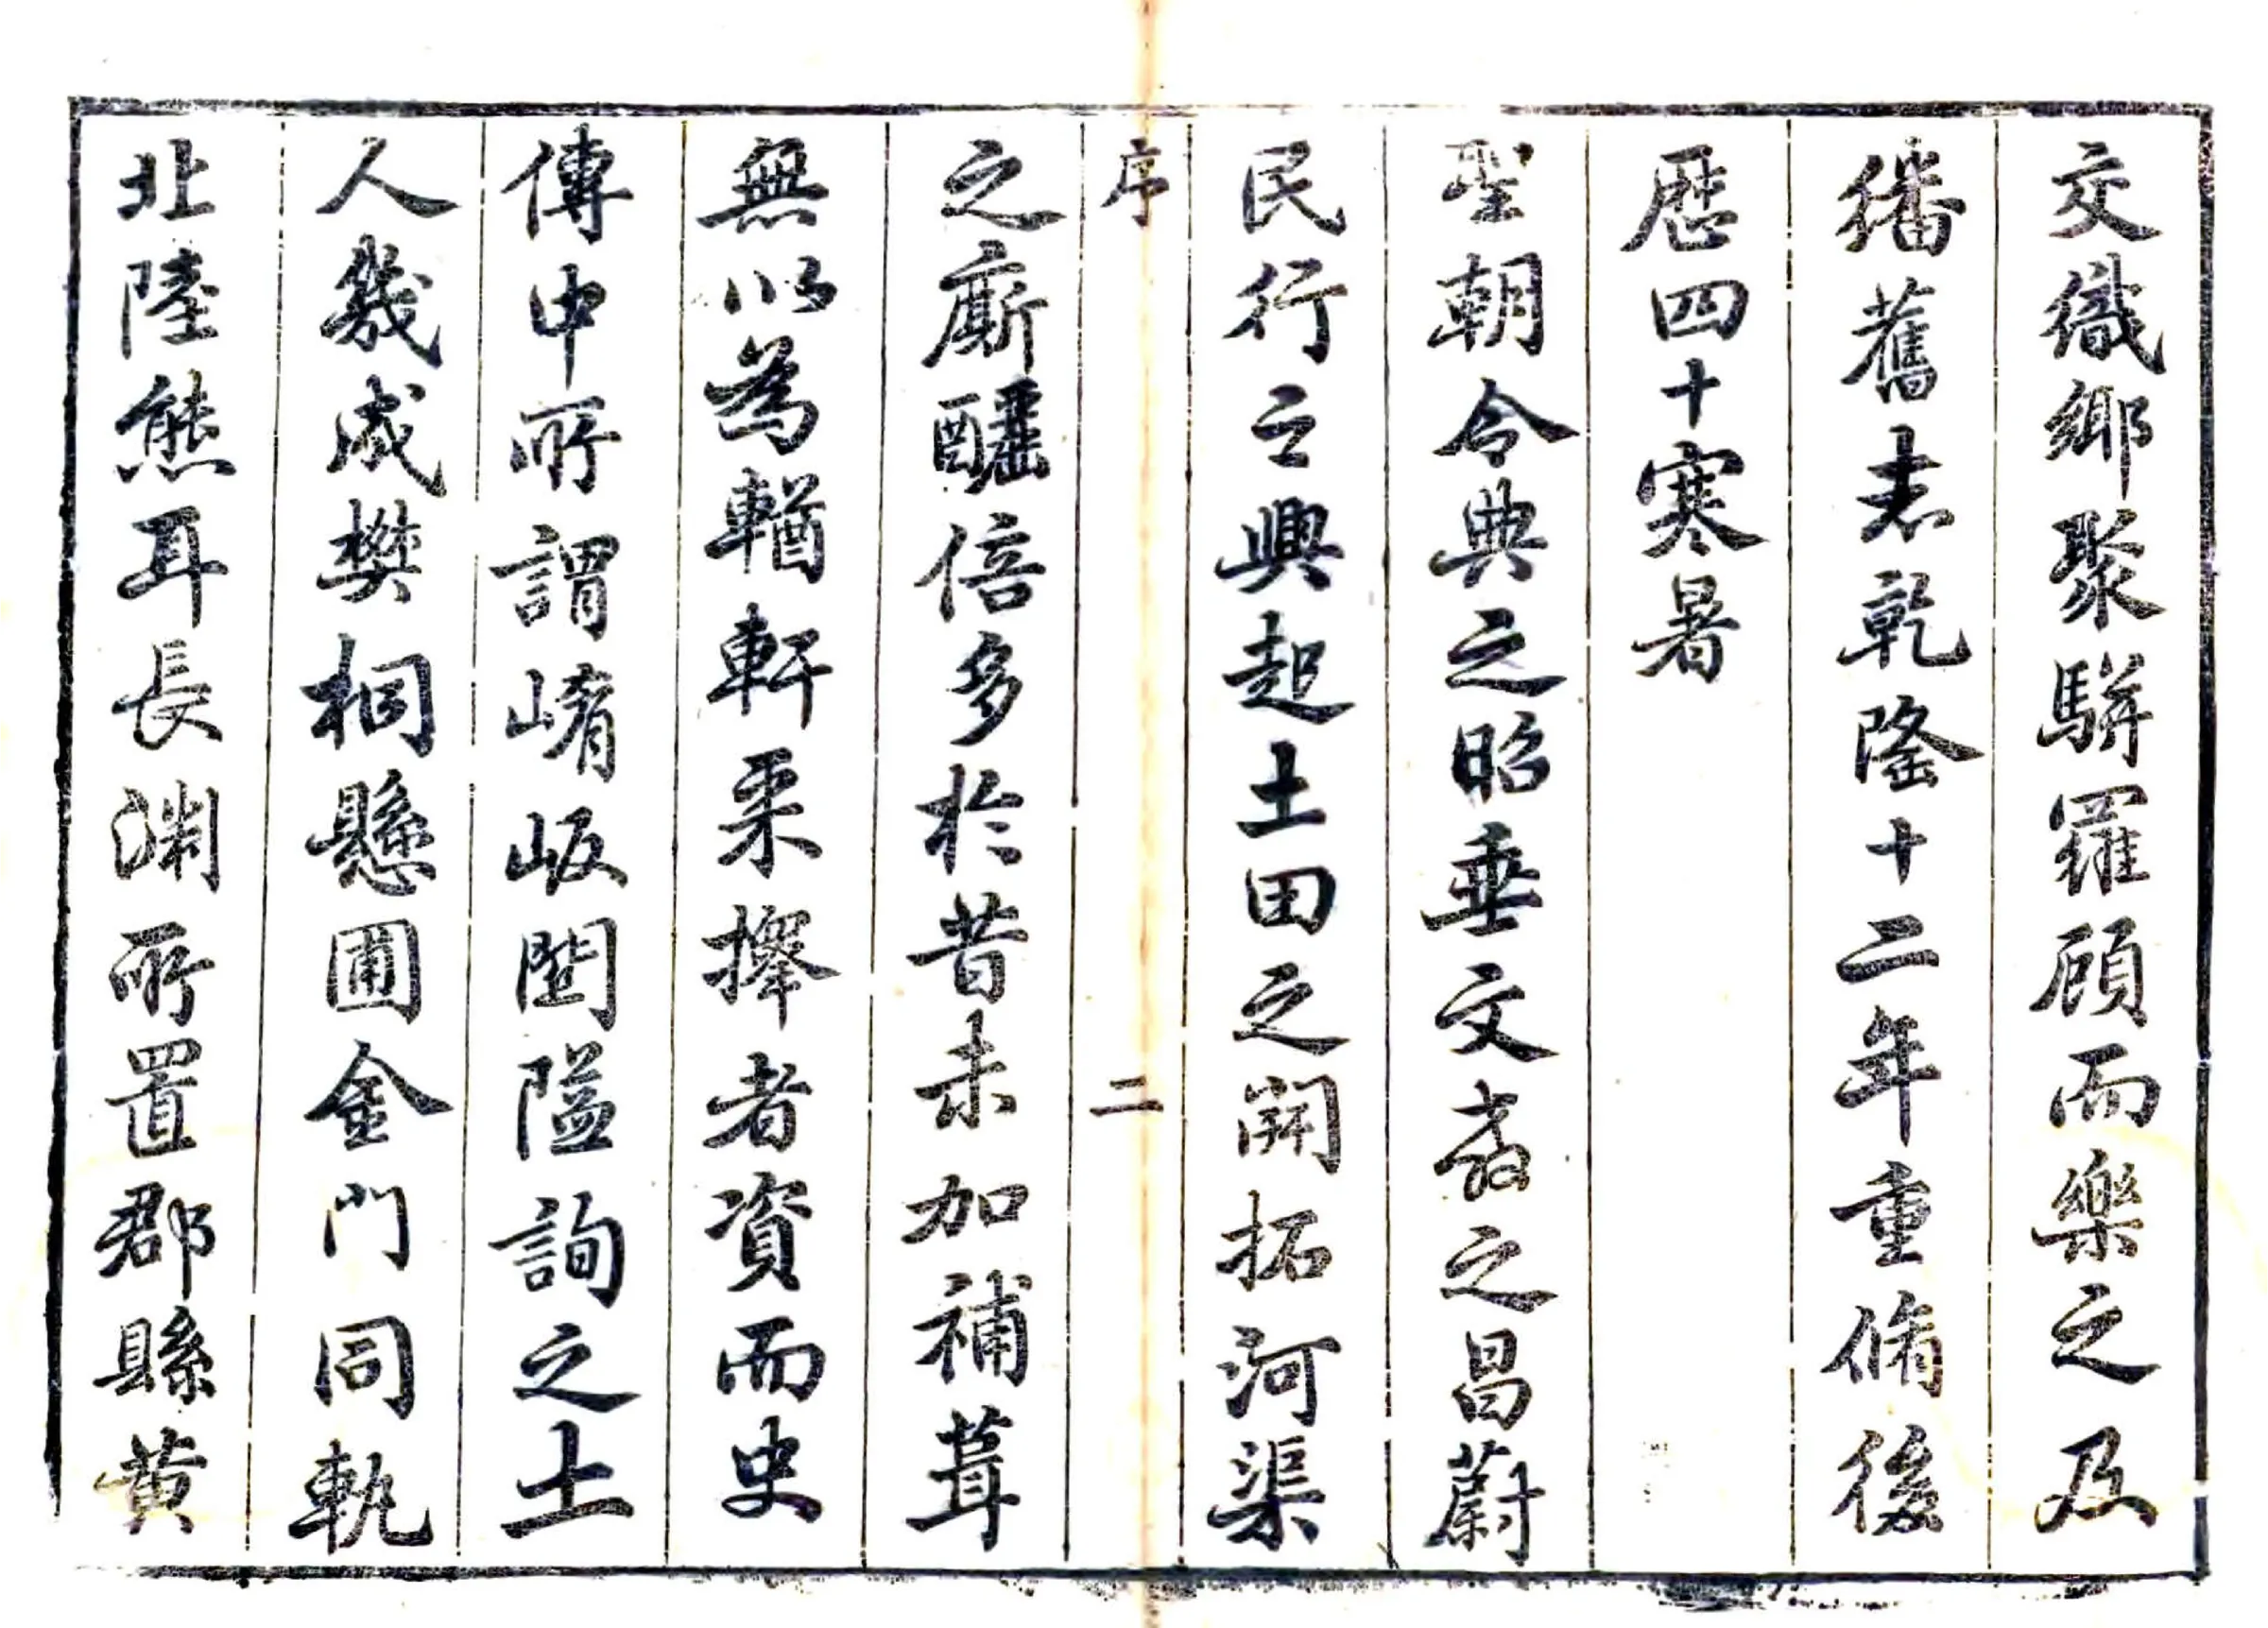 交織鄉聚駢羅顧而樂之及
繙舊志乾隆十二年重脩後
歷四十寒暑
聖朝令典之昭垂文教之昌蔚
民行之興起土田之開拓河渠
序 二
之廝釃倍多於昔未加補葺
無以為輶軒采擇者資而史
傳中所謂崤岅隘詢之土
人幾成樊桐懸圃金門同軌
北陸熊耳長淵所置郡縣黃